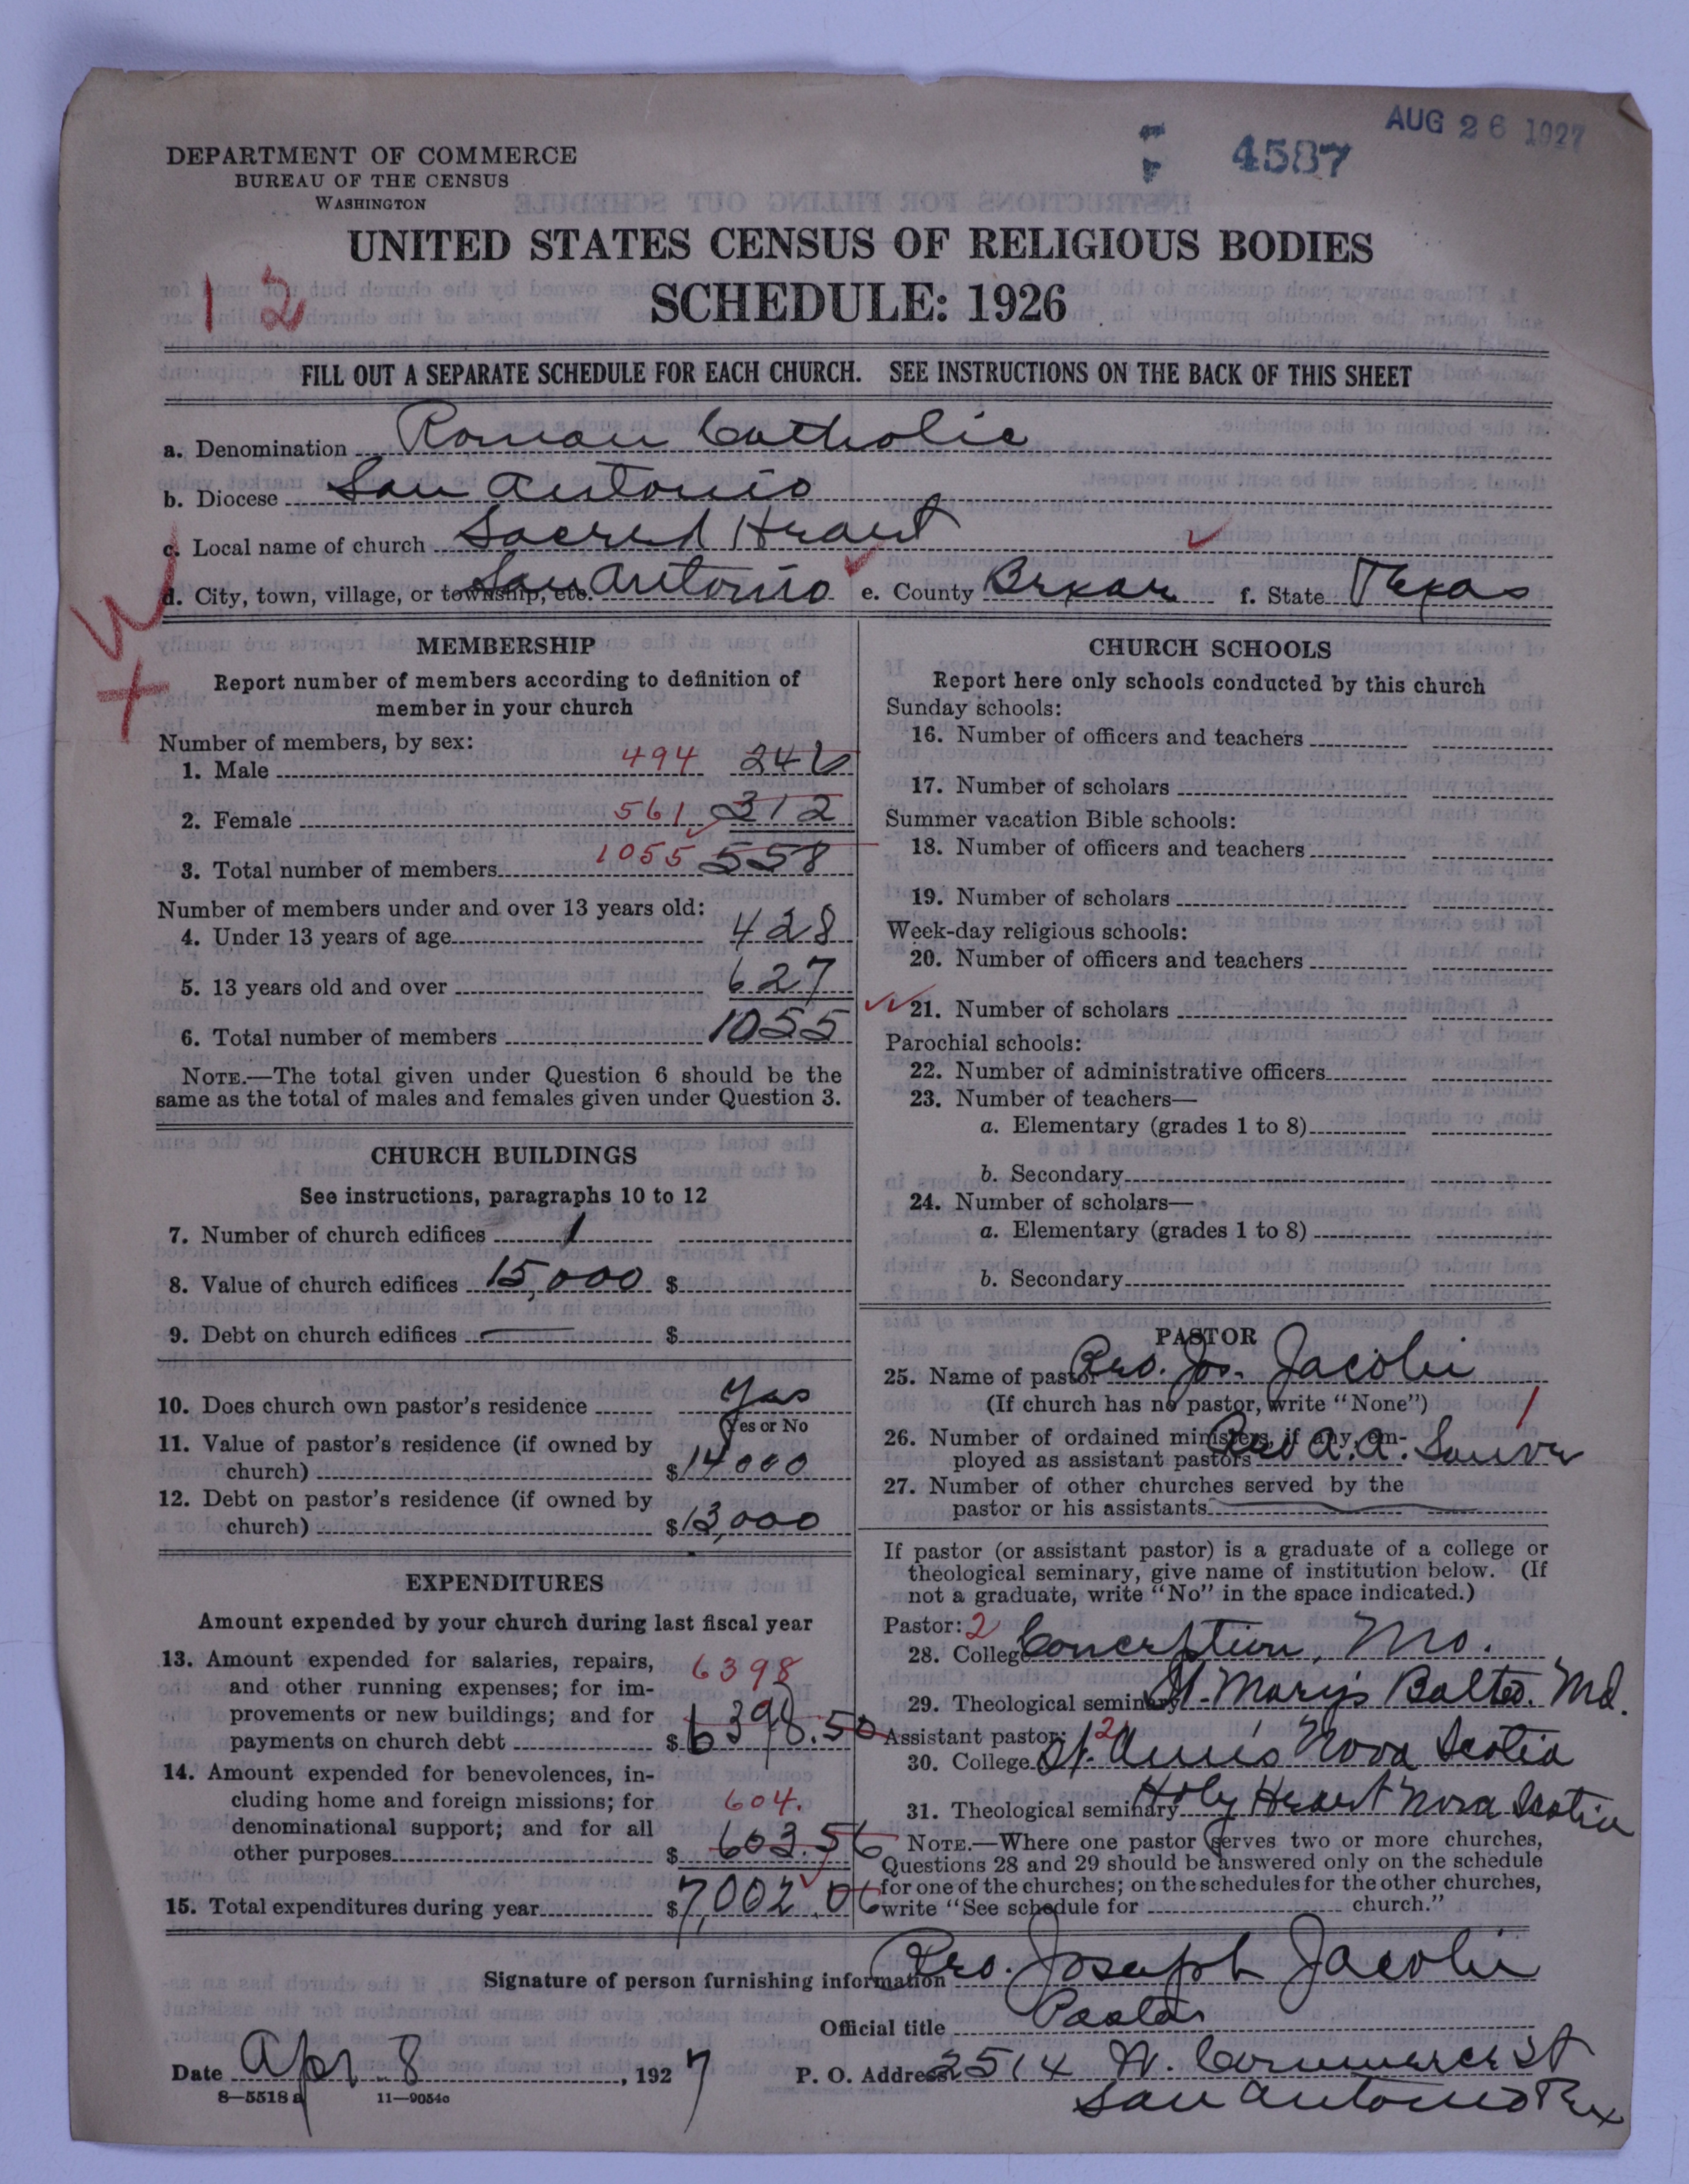 AUG 26 1927
4587
DEPARTMENT OF COMMERCE
BUREAU OF THE CENSUS
WASHINGTON
UNITED STATES CENSUS OF RELIGIOUS BODIES
SCHEDULE: 1926
12
FILL OUT A SEPARATE SCHEDULE FOR EACH CHURCH. SEE INSTRUCTIONS ON THE BACK OF THIS SHEET
a. Denomination Roman Catholic
b. Diocese San Antonio
c. Local name of church Sacred Heart
d. City, town, village, or township, etc. San Antonio e. County Bexar f. State Texas
MEMBERSHIP
Report number of members according to definition of
member in your church
Number of members, by sex:
1. Male 494 246
2. Female 561 312
3. Total number of members 1055 558
Number of members under and over 13 years old:
4. Under 13 years of age 428
5. 13 years old and over 627
6. Total number of members 1055
NOTE.—The total given under Question 6 should be the
same as the total of males and females given under Question 3.
CHURCH BUILDINGS
See instructions, paragraphs 10 to 12
7. Number of church edifices 1
8. Value of church edifices 15,000 $
9. Debt on church edifices — $
10. Does church own pastor's residence Yes
Yes or No
11. Value of pastor's residence (if owned by
church) $14000
12. Debt on pastor's residence (if owned by
church) $13,000
EXPENDITURES
Amount expended by your church during last fiscal year
13. Amount expended for salaries, repairs,
and other running expenses; for im-
provements or new buildings; and for
payments on church debt 6398 $6398.50
14. Amount expended for benevolences, in-
cluding home and foreign missions; for
denominational support; and for all
other purposes 604. $603.56
15. Total expenditures during year $7,002.06
CHURCH SCHOOLS
Report here only schools conducted by this church
Sunday schools:
16. Number of officers and teachers
17. Number of scholars
Summer vacation Bible schools:
18. Number of officers and teachers
19. Number of scholars
Week-day religious schools:
20. Number of officers and teachers
21. Number of scholars
Parochial schools:
22. Number of administrative officers
23. Number of teachers—
a. Elementary (grades 1 to 8)
b. Secondary
24. Number of scholars—
a. Elementary (grades 1 to 8)
b. Secondary
PASTOR
25. Name of pastor Rev. Jos. Jacobi
(If church has no pastor, write "None") 1
26. Number of ordained ministers, if any, em-
ployed as assistant pastors Rev A.A.
27. Number of other churches served by the
pastor or his assistants —
If pastor (or assistant pastor) is a graduate of a college or
theological seminary, give name of institution below. (If
not a graduate, write "No" in the space indicated.)
Pastor: 2
28. College Conception, Mo.
29. Theological seminary St. Mary's Balto. Md.
Assistant pastor: 2
30. College St. Ann's Nova Scotia
31. Theological seminary Holy Heart Nova Scotia
NOTE.—Where one pastor serves two or more churches,
Questions 28 and 29 should be answered only on the schedule
for one of the churches; on the schedules for the other churches,
write "See schedule for church."
Signature of person furnishing information Rev. Joseph Jacobi
Official title Pastor
Date Apr 8, 1927 P. O. Address 2514 W. Commerce St
San Antonio Tex
8—5518 a 11—9054c